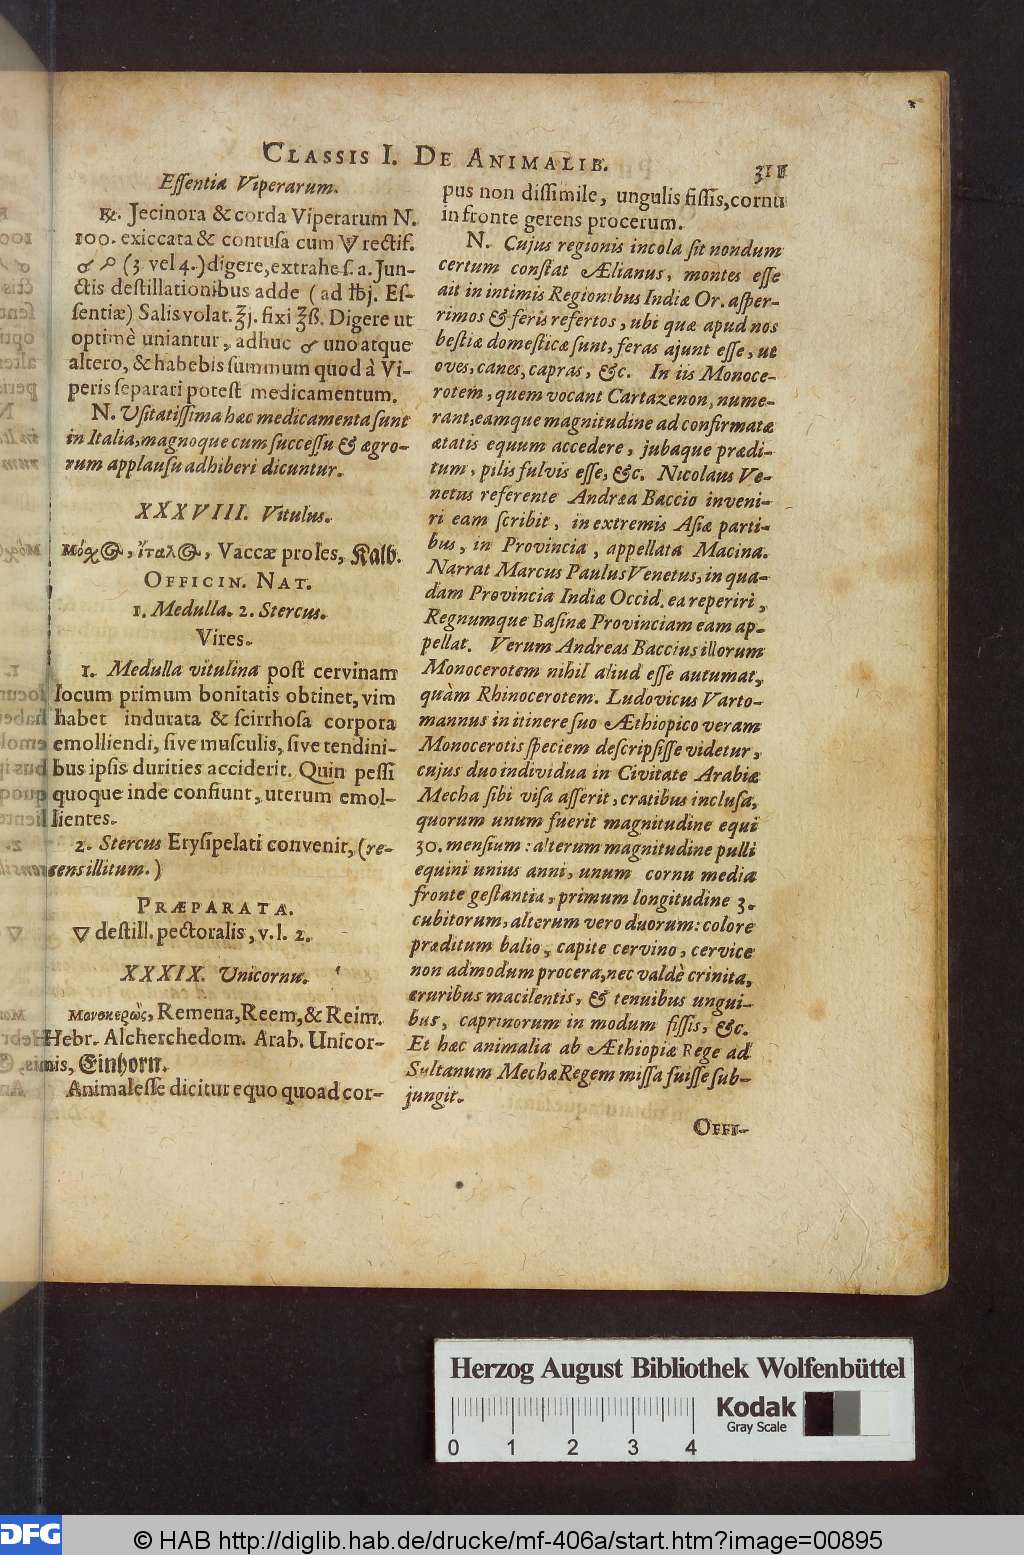 CLASSIS I. DE ANIMALIB. 311
Essentia Viperarum.
℞. Jecinora & corda Viperarum N.
100. exiccata & contusa cum rectif.
♂ (3 vel 4.) digere, extrahe s. a. Jun-
ctis destillationibus adde (ad ℔j. Es-
sentiæ) Salis volat. ℥j. fixi ℥ß. Digere ut
optimè uniantur, adhuc ♂ uno atque
altero, & habebis summum quod à Vi-
peris separati potest medicamentum.
N. Usitatissima hæc medicamenta sunt
in Italia, magnoque cum successu & ægro-
rum applausu adhiberi dicuntur.
XXXVIII. Vitulus.
Μόσχος, ἴταλος, Vaccæ proles, Kalb.
OFFICIN. NAT.
1. Medulla. 2. Stercus.
Vires.
1. Medulla vitulina post cervinam
locum primum bonitatis obtinet, vim
habet indurata & scirrhosa corpora
emolliendi, sive musculis, sive tendini-
bus ipsis durities acciderit. Quin pessi
quoque inde confiunt, uterum emol-
lientes.
2. Stercus Erysipelati convenit, (re-
cens illitum.)
PRÆPARATA.
▽ destill. pectoralis, v. l. 2.
XXXIX. Unicornu.
Μονοκερως, Remena, Reem, & Reim.
Hebr. Alcherchedom. Arab. Unicor-
nis, Einhorn.
Animal esse dicitur equo quoad cor-
pus non dissimile, ungulis fissis, cornu
in fronte gerens procerum.
N. Cujus regionis incola sit nondum
certum constat Ælianus, montes esse
ait in intimis Regionibus Indiæ Or. asper-
rimos & feris refertos, ubi quæ apud nos
bestiæ domesticæ sunt, feras ajunt esse, ut
oves, canes, capras, &c. In iis Monoce-
rotem, quem vocant Cartazenon, nume-
rant, eamque magnitudine ad confirmatæ
ætatis equum accedere, jubaque prædi-
tum, pilis fulvis esse, &c. Nicolaus Ve-
netus referente Andræa Baccio inveni-
ri eam scribit, in extremis Asiæ parti-
bus, in Provincia, appellata Macina.
Narrat Marcus Paulus Venetus, in qua-
dam Provincia Indiæ Occid. ea reperiri,
Regnumque Basinæ Provinciam eam ap-
pellat. Verum Andreas Baccius illorum
Monocerotem nihil aliud esse autumat,
quàm Rhinocerotem. Ludovicus Varto-
mannus in itinere suo Æthiopico veram
Monocerotis speciem descripsisse videtur,
cujus duo individua in Civitate Arabiæ
Mecha sibi visa asserit, cratibus inclusa,
quorum unum fuerit magnitudine equi
30. mensium: alterum magnitudine pulli
equini unius anni, unum cornu media
fronte gestantia, primum longitudine 3.
cubitorum, alterum vero duorum: colore
præditum balio, capite cervino, cervice
non admodum procera, nec valdè crinita,
cruribus macilentis, & tenuibus ungui-
bus, caprinorum in modum fissis, &c.
Et hæc animalia ab Æthiopiæ Rege ad
Sultanum Mechæ Regem missa fuisse sub-
jungit.
OFFI-
Herzog August Bibliothek Wolfenbüttel
Kodak
Gray Scale
0 1 2 3 4
DFG
© HAB http://diglib.hab.de/drucke/mf-406a/start.htm?image=00895